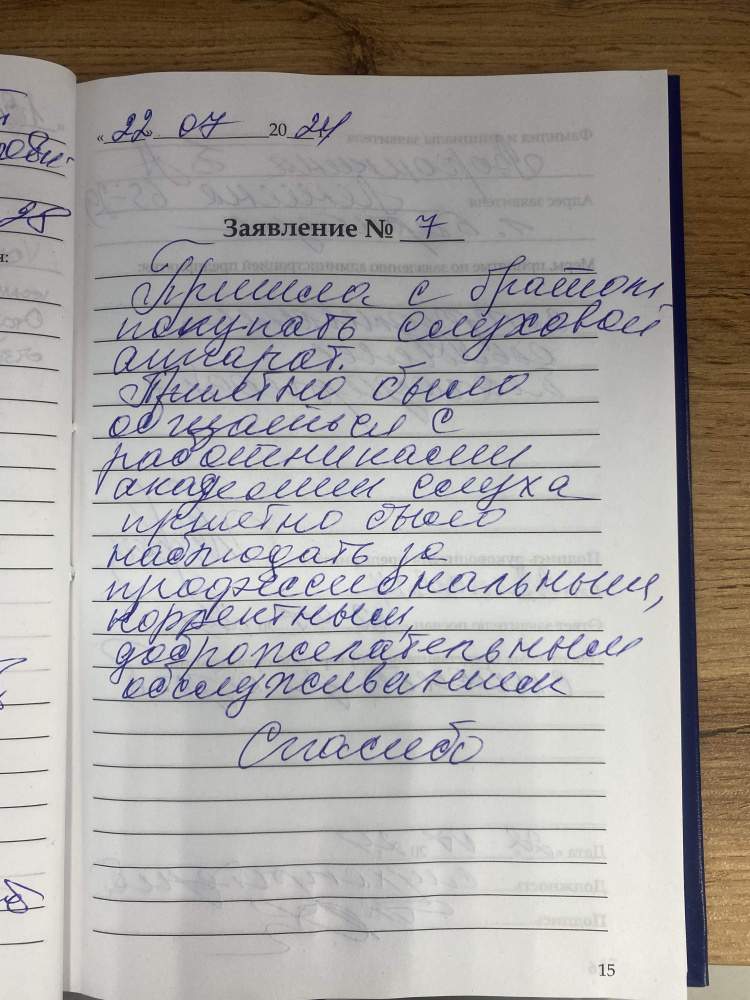 « 22 » 07 20 24
Заявление № 7
Пришла с братом
покупать слуховой
аппарат.
Приятно было
общаться с
работниками
академии слуха
приятно было
наблюдать за
профессиональным,
корректным,
доброжелательным
обслуживанием
Спасибо
15